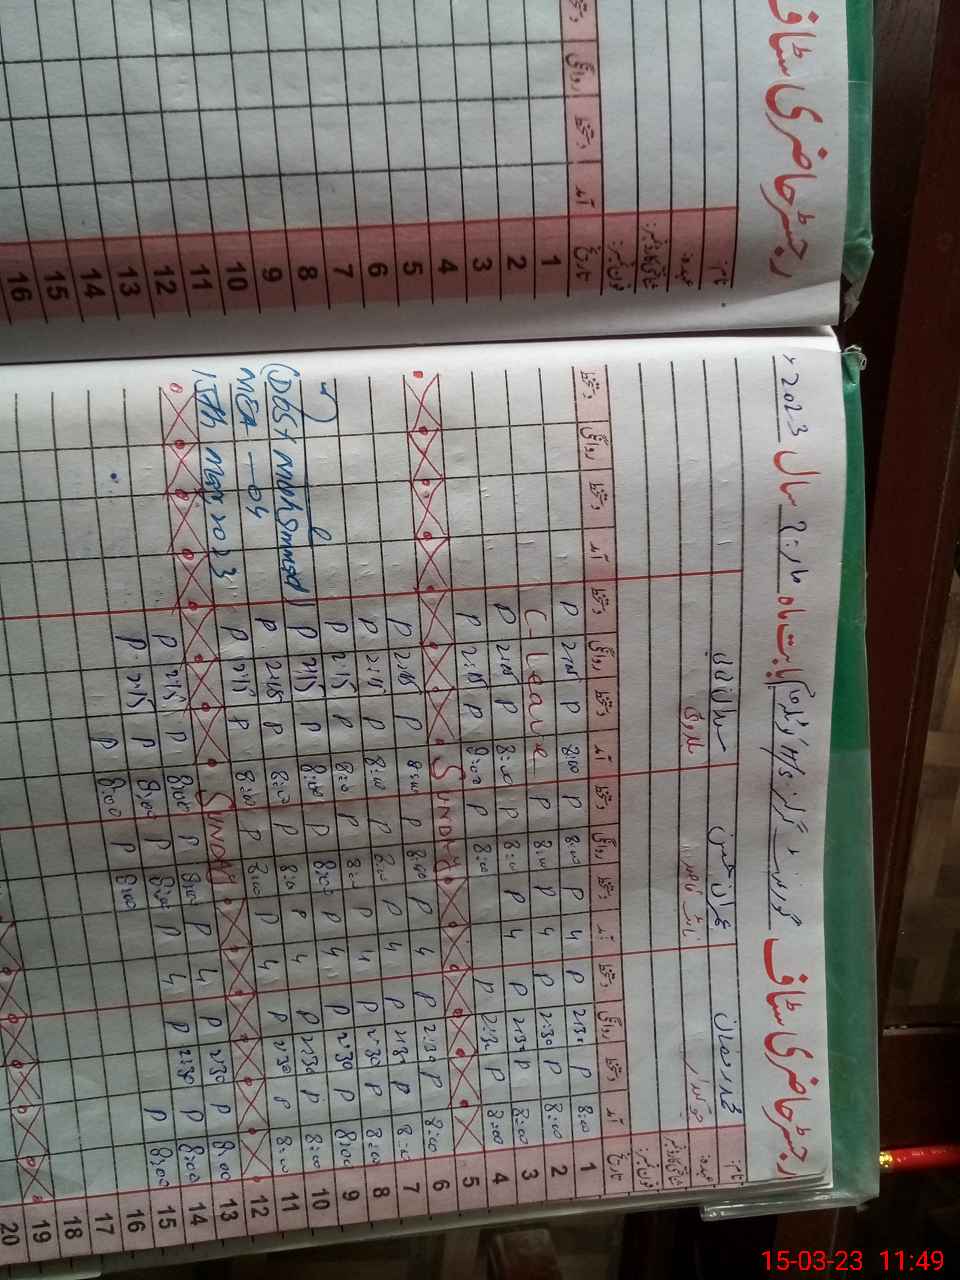 رجسٹر حاضری سٹاف
نام:
عہدہ:
شناختی کارڈ نمبر:
فون نمبر:
تاریخ آمد دستخط روانگی دستخط
1
2
3
4
5
6
7
8
9
10
11
12
13
14
15
16
رجسٹر حاضری سٹاف گورنمنٹ گرلز بابت ماہ مارچ سال 2023ء
نام: محمد رمضان عمران حسین
عہدہ: چوکیدار نائب قاصد
شناختی کارڈ نمبر
فون نمبر:
تاریخ آمد دستخط روانگی دستخط آمد دستخط روانگی دستخط آمد دستخط روانگی دستخط آمد دستخط روانگی دستخط
1 8:00 P 2:30 P 4 P 8:00 P 8:00 P 2:15 P
2 8:00 P 2:30 P 4 P 8:00 P C-Leave
3 8:00 P 2:30 P 4 P 8:00 P 8:00 P 2:15 P
4 8:00 P 2:30 P 8:00 P 8:00 P 2:15 P
5 SUNDAY
6 8:00 P 2:30 P 4 P 8:00 P 8:00 P 2:15 P
7 8:00 P 2:30 P 4 P 8:00 P 8:00 P 2:15 P
8 8:00 P 2:30 P 4 P 8:00 P 8:00 P 2:15 P
9 8:00 P 2:30 P 4 P 8:00 P 8:00 P 2:15 P
10 8:00 P 2:30 P 4 P 8:00 P 8:00 P 2:15 P
11 8:00 P 2:30 P 4 P 8:00 P 8:00 P 2:15 P
12 SUNDAY
13 8:00 P 2:30 P 4 P 8:00 P 8:00 P 2:15 P
14 8:00 P 2:30 P 4 P 8:00 P 8:00 P 2:15 P
15 8:00 P 8:00 P 8:00 P
16
17
18
19
20
(Dost Muhammad)
MEA - 04
15th Mar, 2023
15-03-23 11:49